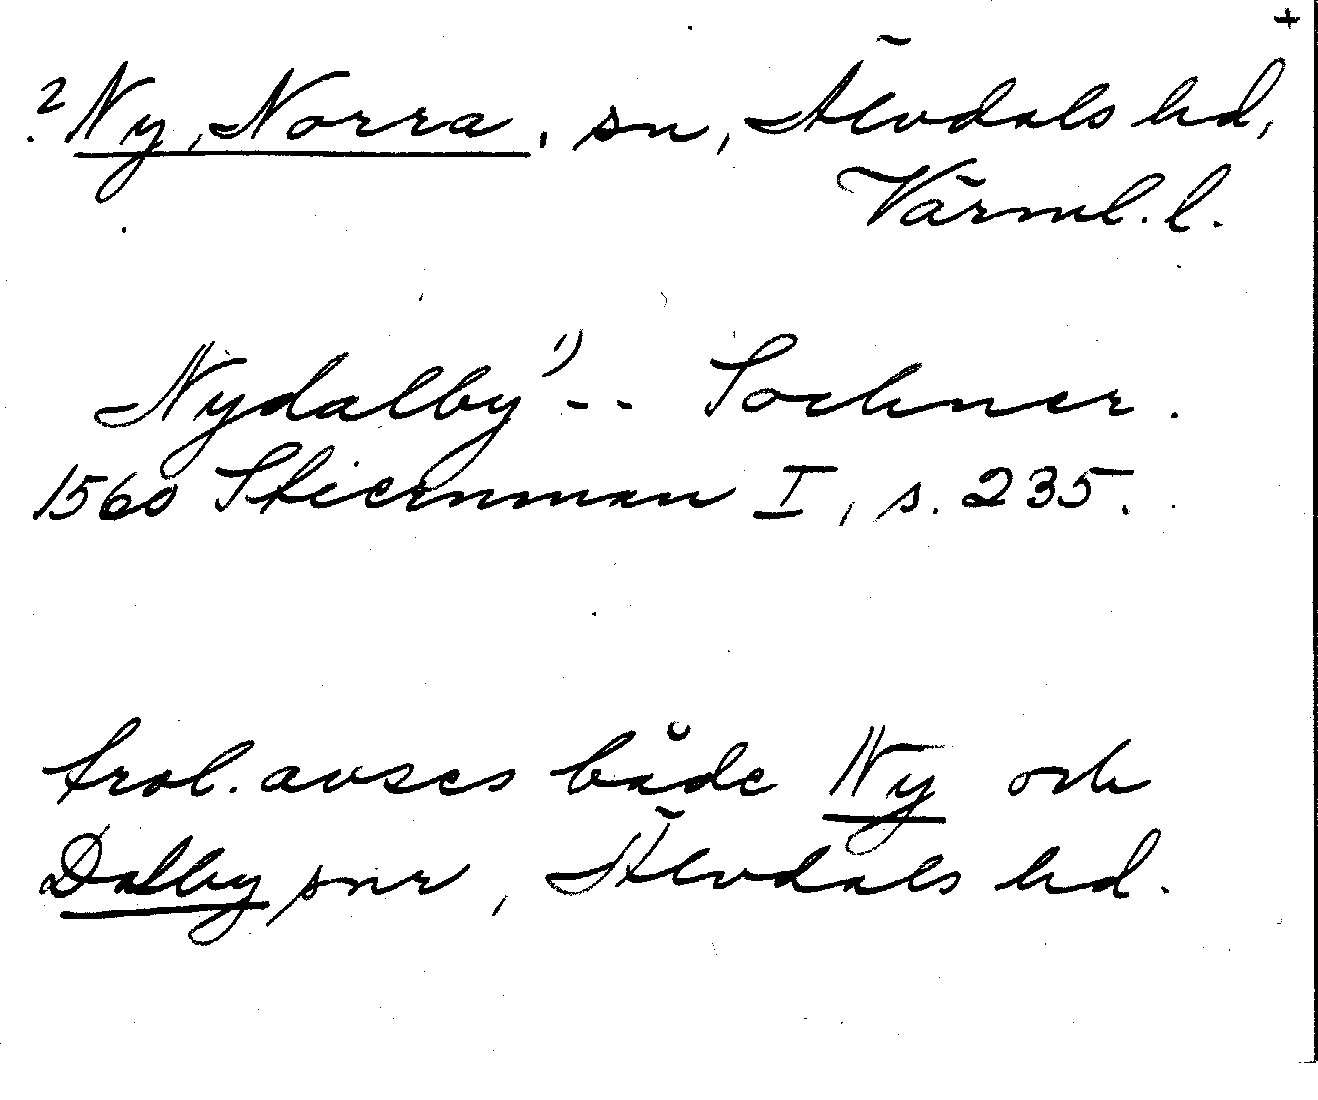 +
? Ny, Norra, sn, Älvdals hd,
Värml. l.
Nydalby 1) -- Sochner.
1560 Stiernman I, s. 235.
trol. avses både Ny och
Dalby snr, Älvdals hd.